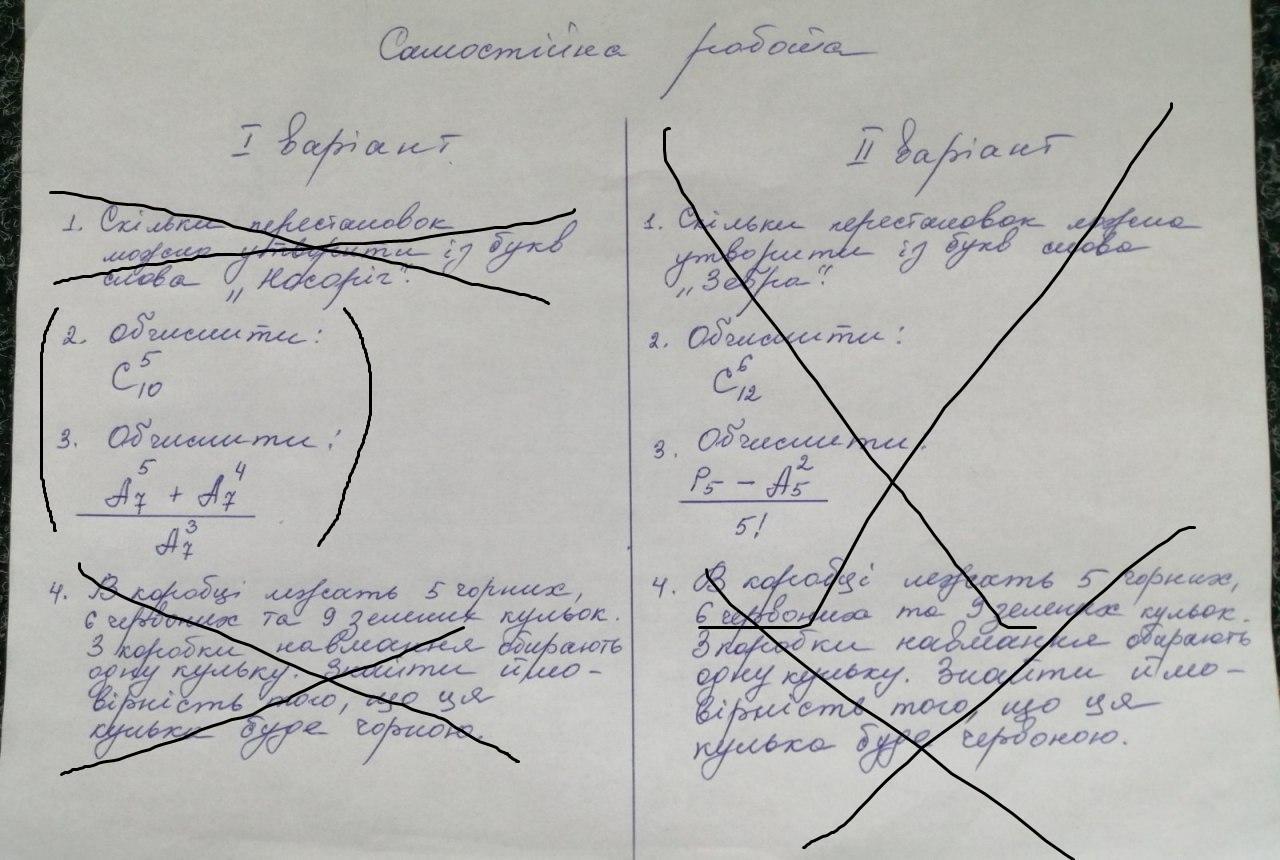 Самостійна робота
I варіант
1. Скільки перестановок
можна утворити із букв
слова „Носоріг".
2. Обчислити:
C₁₀⁵
3. Обчислити:
A₇⁵ + A₇⁴
A₇³
4. В коробці лежать 5 чорних,
6 червоних та 9 зелених кульок.
З коробки навмання обирають
одну кульку. Знайти ймо-
вірність того, що ця
кулька буде чорною.
II варіант
1. Скільки перестановок можна
утворити із букв слова
„Зебра".
2. Обчислити:
C₁₂⁶
3. Обчислити:
P₅ - A₅²
5!
4. В коробці лежать 5 чорних,
6 червоних та 9 зелених кульок.
З коробки навмання обирають
одну кульку. Знайти ймо-
вірність того, що ця
кулька буде червоною.